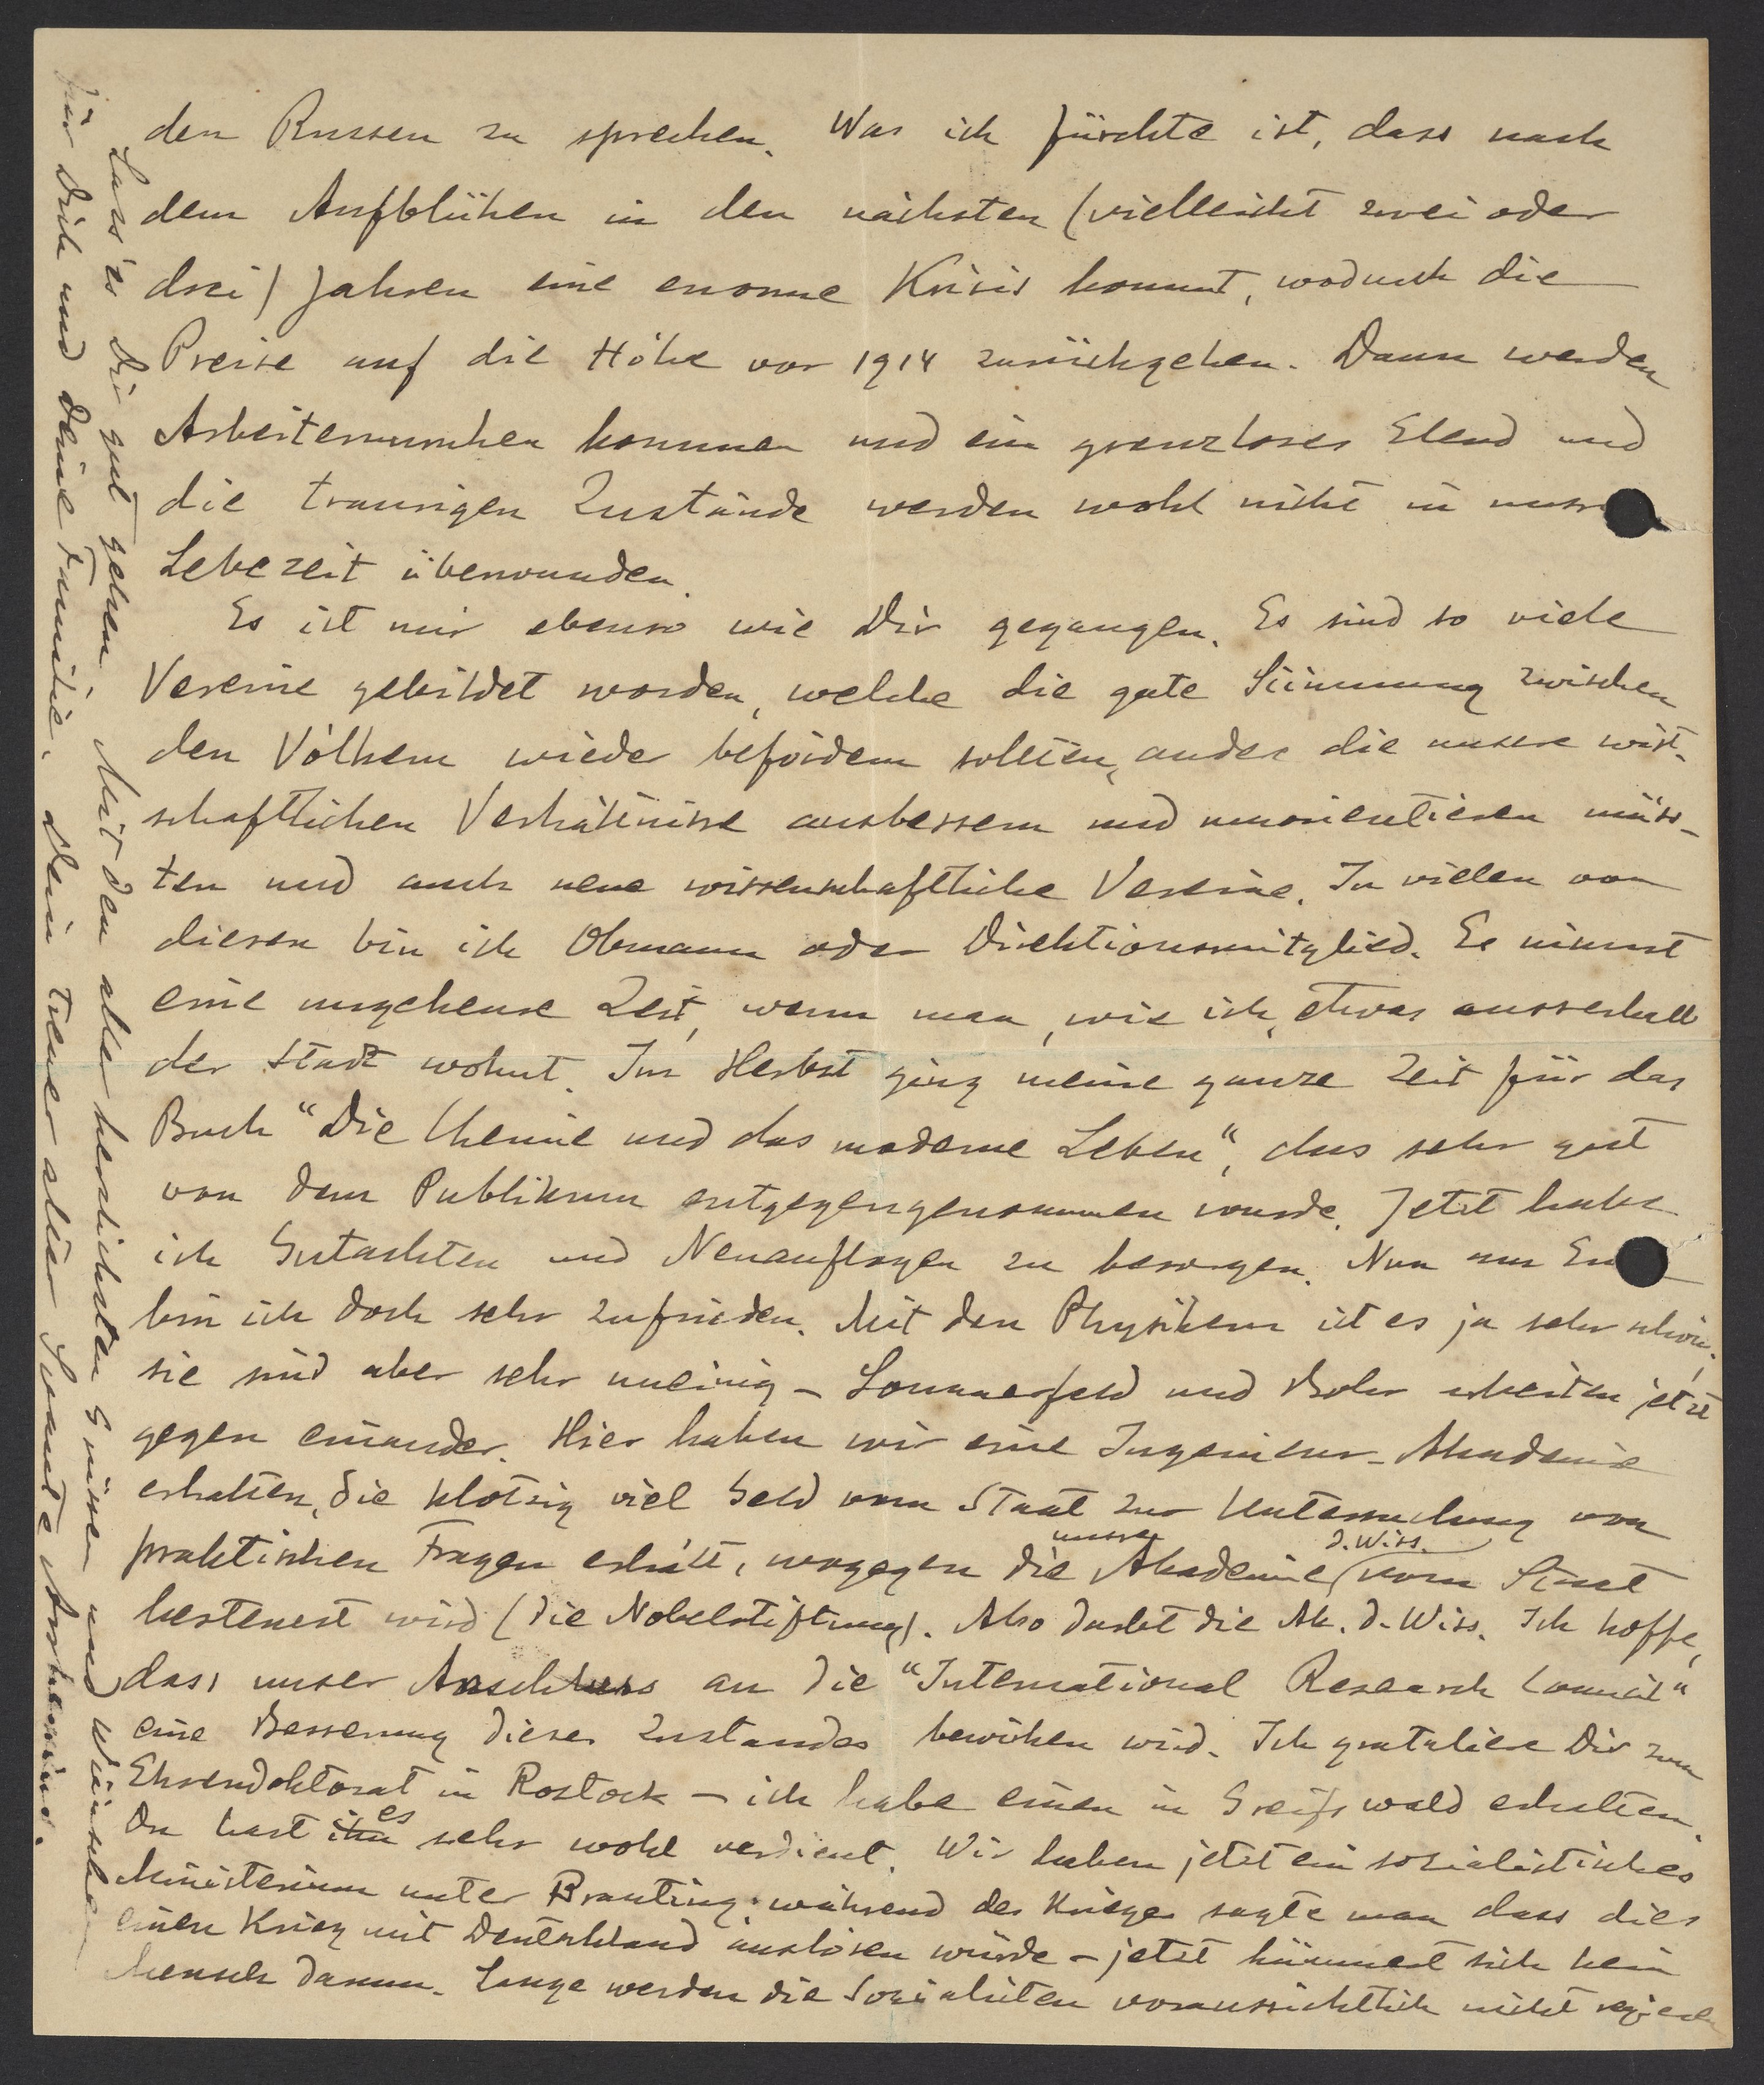 den Russen zu sprechen. Was ich fürchte ist, dass nach
dem Aufblühen in den nächsten (vielleicht zwei oder
drei) Jahren eine enorme Krisis kommt, wodurch die
Preise auf die Höhe vor 1914 zurückgehen. Dann werden
Arbeiterunruhen kommen und ein grenzloses Elend und
die traurigen Zustände werden wohl nicht in unsrer
Lebezeit überwunden.
Es ist mir ebenso wie Dir gegangen. Es sind so viele
Vereine gebildet worden, welche die gute Stimmung zwischen
den Völkern wieder befördern sollten, andere die unsere wirt-
schaftlichen Verhältnisse ausbessern und neuorientieren müss-
ten und auch neue wissenschaftliche Vereine. In vielen von
diesen bin ich Obmann oder Direktionsmitglied. Es nimmt
eine ungeheure Zeit, wenn man, wie ich, etwas ausserhalb
der Stadt wohnt. Im Herbst ging meine ganze Zeit für das
Buch "Die Chemie und das moderne Leben", das sehr gut
von dem Publikum entgegengenommen wurde. Jetzt habe
ich Gutachten und Neuauflagen zu besorgen. Nun am
bin ich doch sehr zufrieden. Mit den Physikern ist es ja sehr schön,
sie sind aber sehr uneinig – Sommerfeld und Bohr arbeiten jetzt
gegen einander. Hier haben wir eine Ingenieur-Akademie
erhalten, die klotzig viel Geld vom Staat zur Untersuchung von
praktischen Fragen erhält, wogegen die unsre Akademie d. Wiss. vom Staat
besteuert wird (die Nobelstiftung). Also darbt die Ak. d. Wiss. Ich hoffe,
dass unser Anschluss an die "International Research Council"
eine Besserung dieses Zustandes bewirken wird. Ich gratuliere Dir zum
Ehrendoktorat in Rostock – ich habe einen in Greifswald erhalten.
Du hast ihn es sehr wohl verdient. Wir haben jetzt ein sozialistisches
Ministerium unter Branting; während des Krieges sagte man dass dies
einen Krieg mit Deutschland auslösen würde – jetzt kümmert sich kein
Mensch darum. Lange werden die Sozialisten voraussichtlich nicht regieren
Lass es Dir gut gehen. Mit den allerherzlichsten Grüssen und Wünschen
für Dich und Deine Familie. Dein treuer alter Svante Arrhenius.